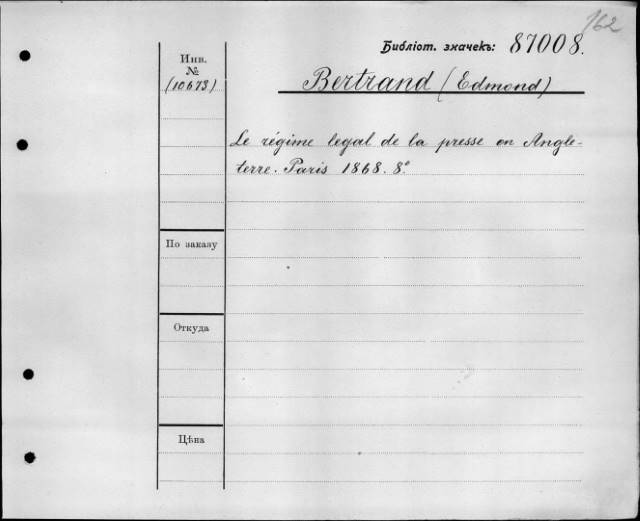 162
Библіот. значекъ: 87008.
Инв.
№
(10673)
Bertrand (Edmond)
Le régime legal de la presse en Angle-
terre. Paris 1868. 8º
По заказу
Откуда
Цѣна